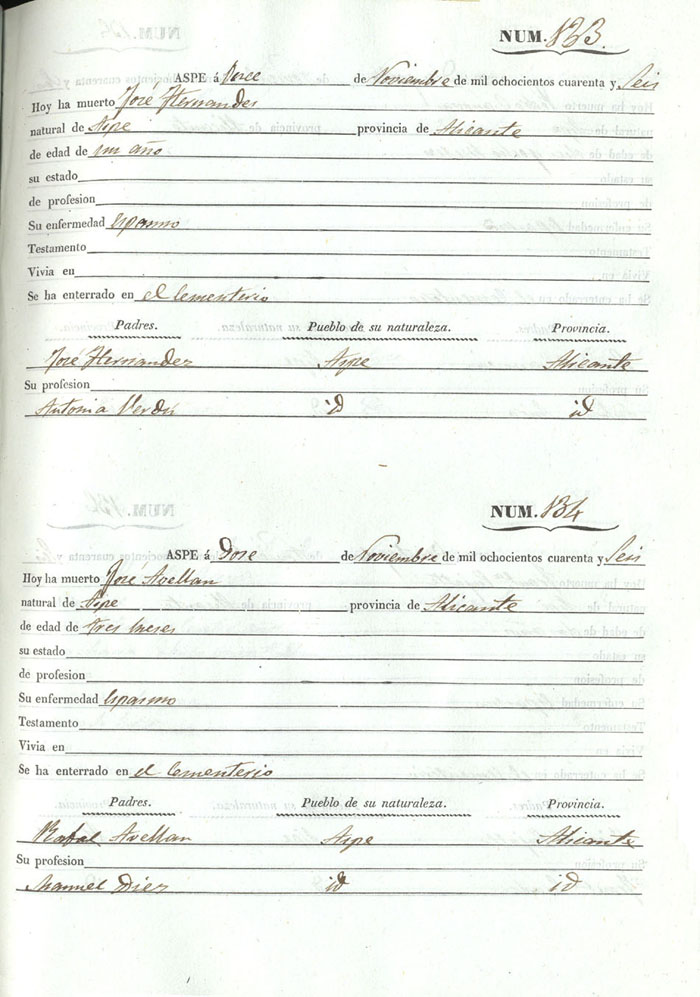 NUM. 133.
ASPE á Doce de Noviembre de mil ochocientos cuarenta y Seis
Hoy ha muerto José Hernandez
natural de Aspe provincia de Alicante
de edad de un año
su estado
de profesion
Su enfermedad Espasmo
Testamento
Vivia en
Se ha enterrado en el Cementerio
Padres. Pueblo de su naturaleza. Provincia.
José Hernandez Aspe Alicante
Su profesion
Antonia Verdú id id
NUM. 134
ASPE á Dose de Noviembre de mil ochocientos cuarenta y Seis
Hoy ha muerto José Avellan
natural de Aspe provincia de Alicante
de edad de tres meses
su estado
de profesion
Su enfermedad Espasmo
Testamento
Vivia en
Se ha enterrado en el Cementerio
Padres. Pueblo de su naturaleza. Provincia.
Avellan Aspe Alicante
Su profesion
Manuel Diez id id